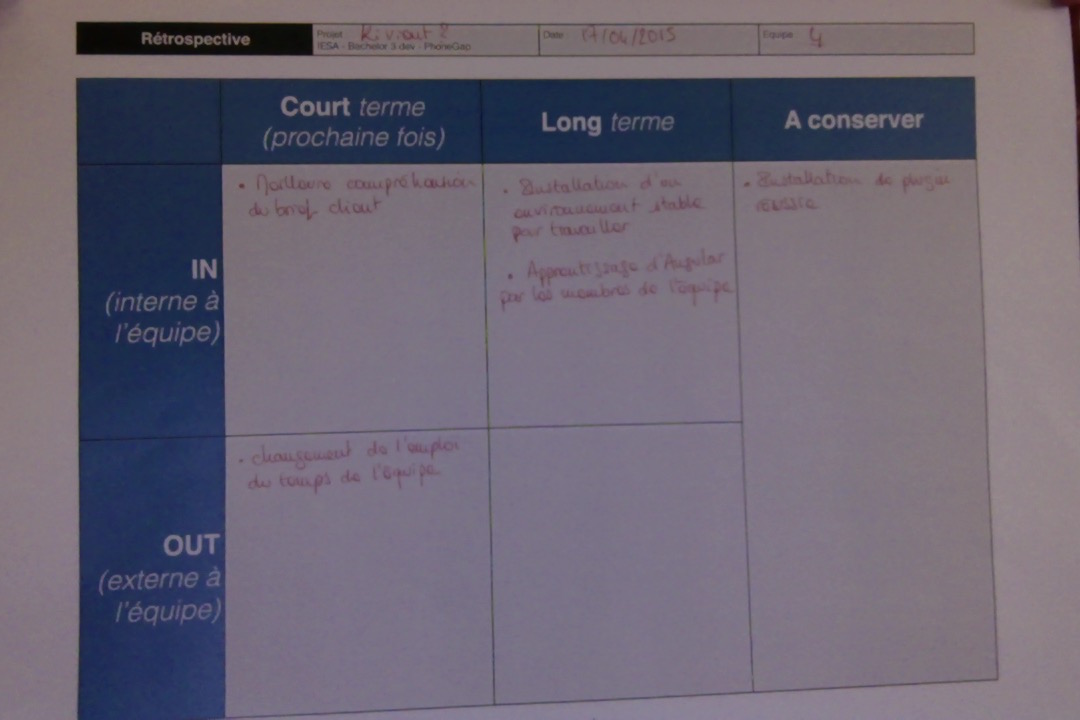 Rétrospective
Projet
IESA - Bachelor 3 dev - PhoneGap
Date 17/04/2015
Equipe 4
Court terme
(prochaine fois)
Long terme
A conserver
IN
(interne à
l'équipe)
• Meilleure compréhension
du brief client
• Installation d'un
environnement stable
par travailler
• Apprentissage d'Angular
par les membres de l'équipe
• Installation de plugin
réussie
OUT
(externe à
l'équipe)
• changement de l'emploi
du temps de l'équipe